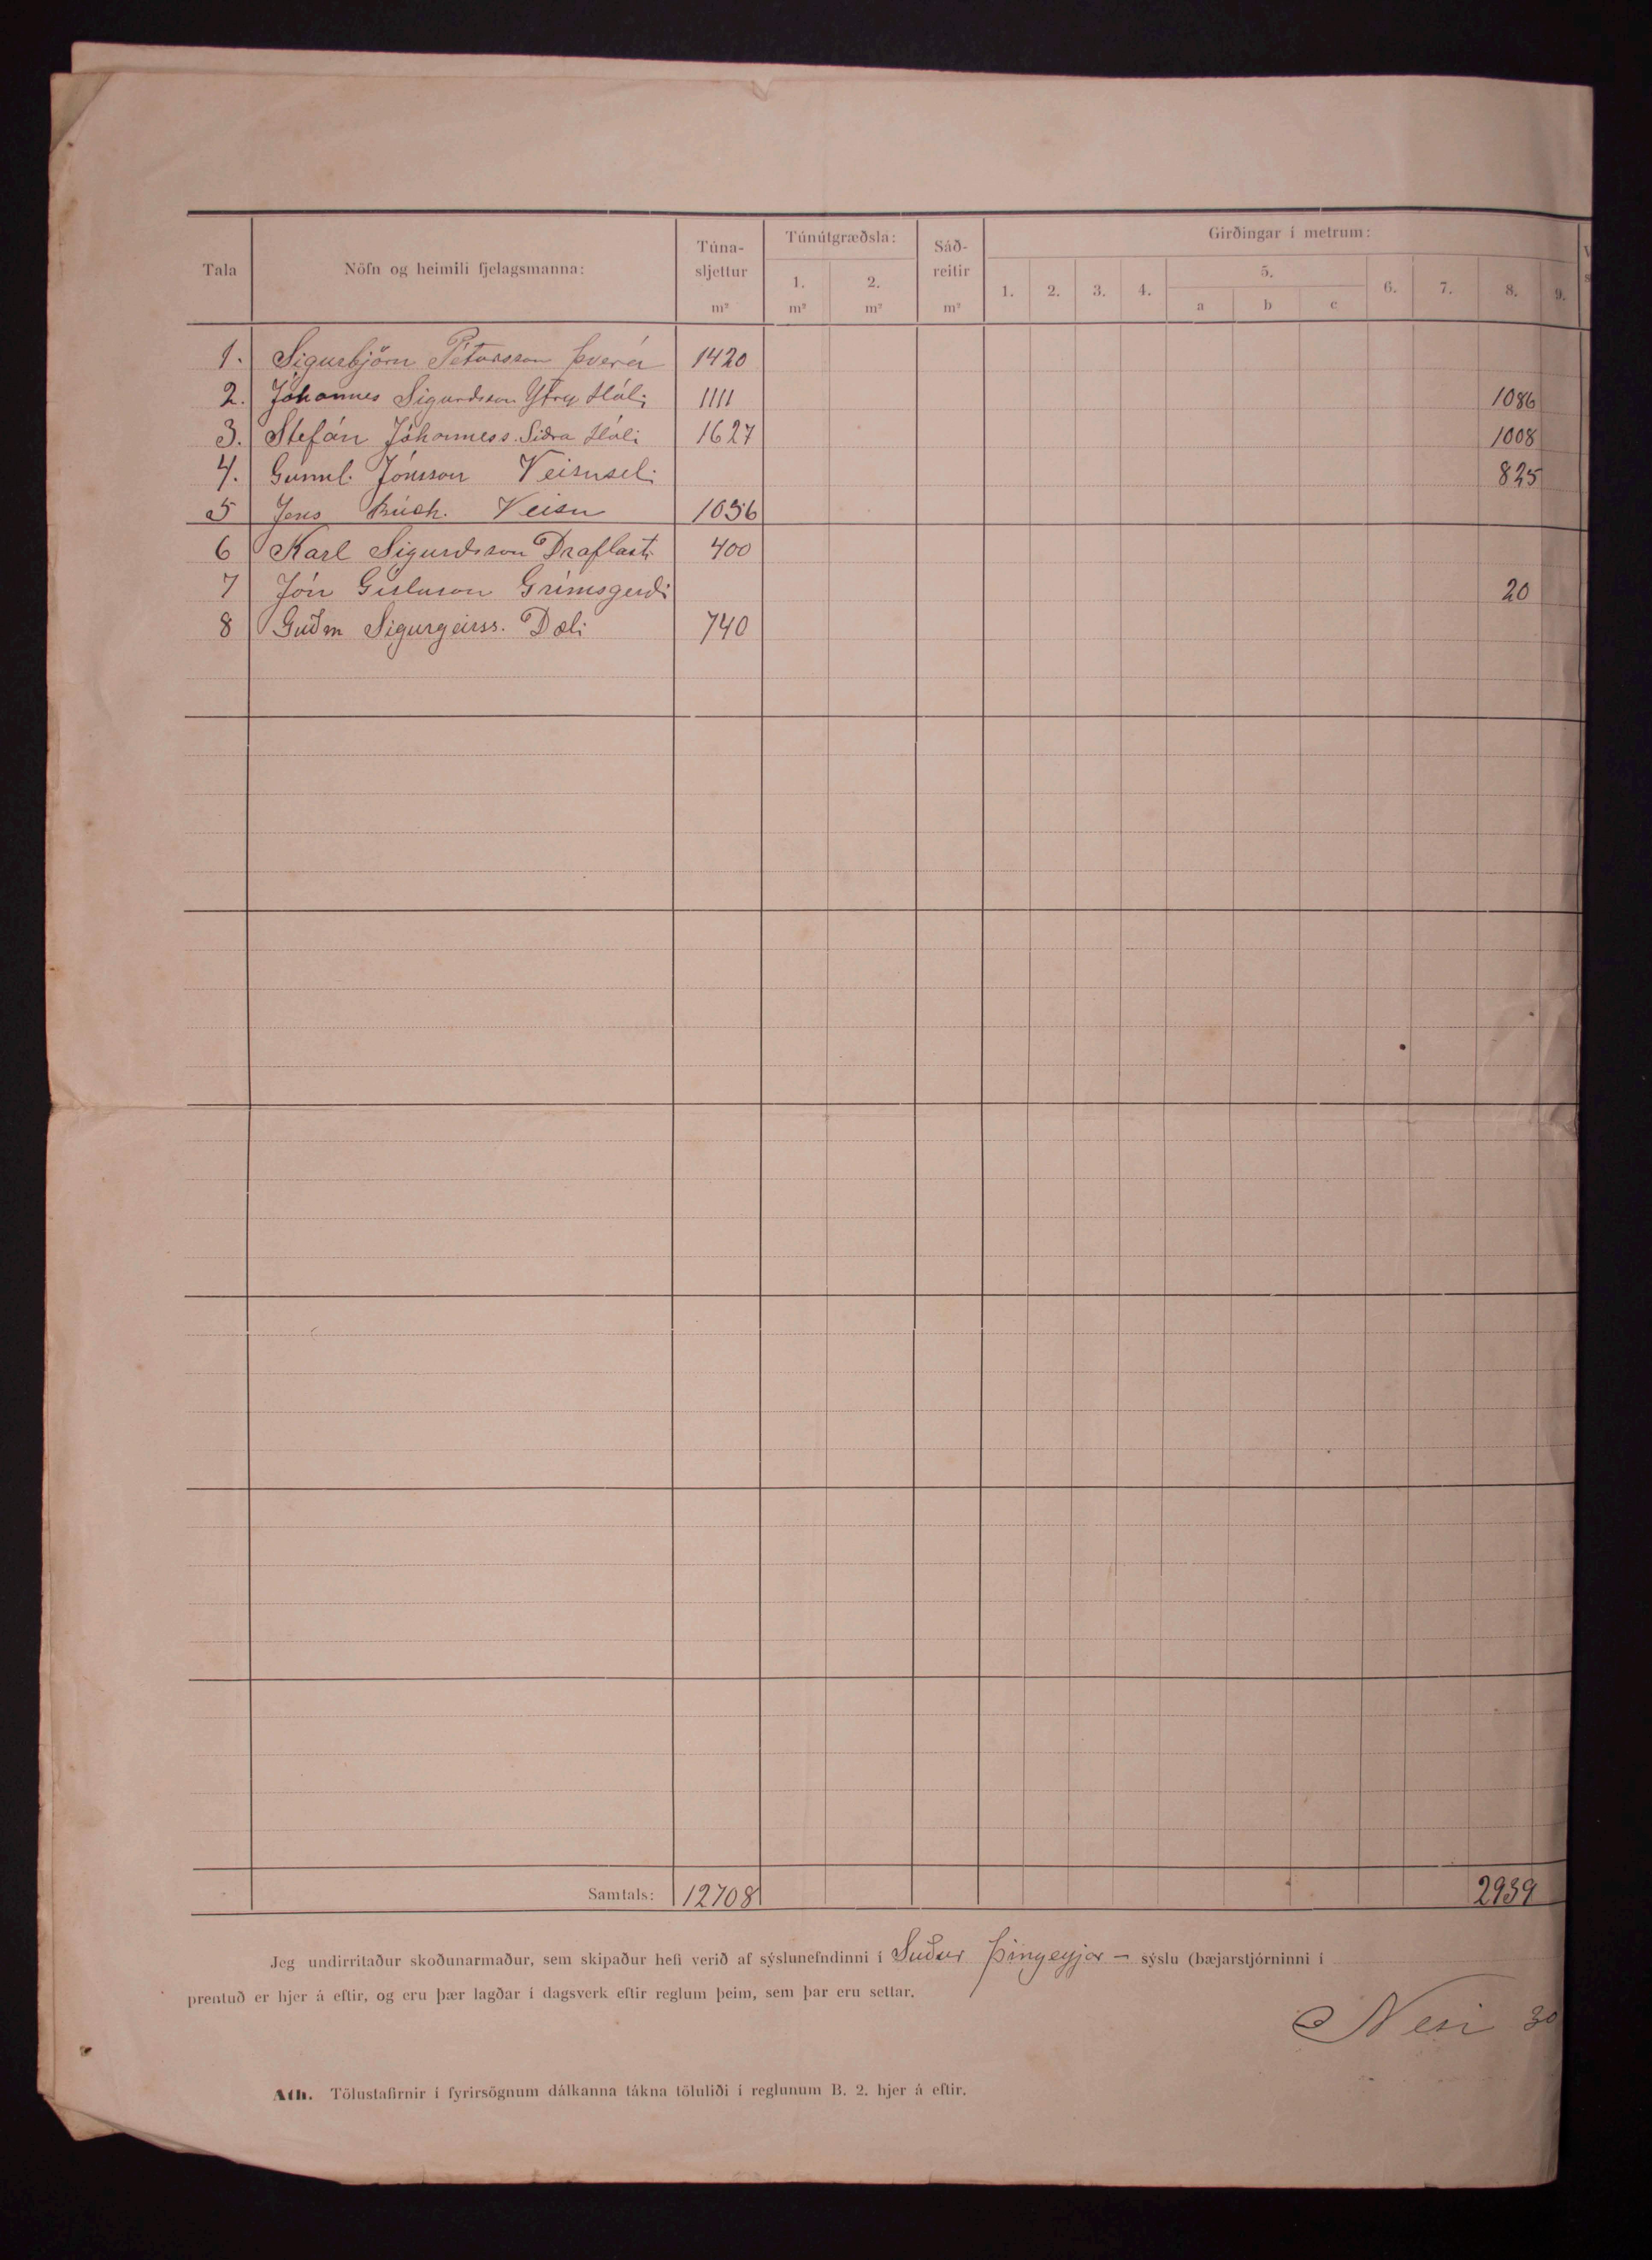 Tala Nöfn og heimili fjelagsmanna: Túna- sljettur m² Túnútgræðsla: 1. m² 2. m² Sáð- reitir m² Girðingar í metrum: 1. 2. 3. 4. 5. a b c 6. 7. 8. 9.
1. Sigurbjörn Pétursson Þverá 1420
2. Jóhannes Sigurdsson Ytra Hóli 1111 1086
3. Stefán Jóhanness. Sidra Hóli 1627 1008
4. Gunnl. Jónsson Veisuseli 825
5 Jens Buch. Veisu 1056
6 Karl Sigurdsson Draflast. 400
7 Jón Gislason Grimsgerdi 20
8 Guðm Sigurgeirss. Dæli 740
Samtals: 12708 2939
Jeg undirritaður skoðunarmaður, sem skipaður hefi verið af sýslunefndinni í Suður Þingeyjar – sýslu (bæjarstjórninni í
prentuð er hjer á eftir, og eru þær lagðar í dagsverk eftir reglum þeim, sem þar eru settar.
Nesi 30
Ath. Tölustafirnir í fyrirsögnum dálkanna tákna töluliði í reglunum B. 2. hjer á eftir.